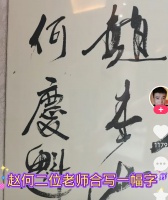 趙本山
何慶魁
赵何二位老师合写一幅字
1179